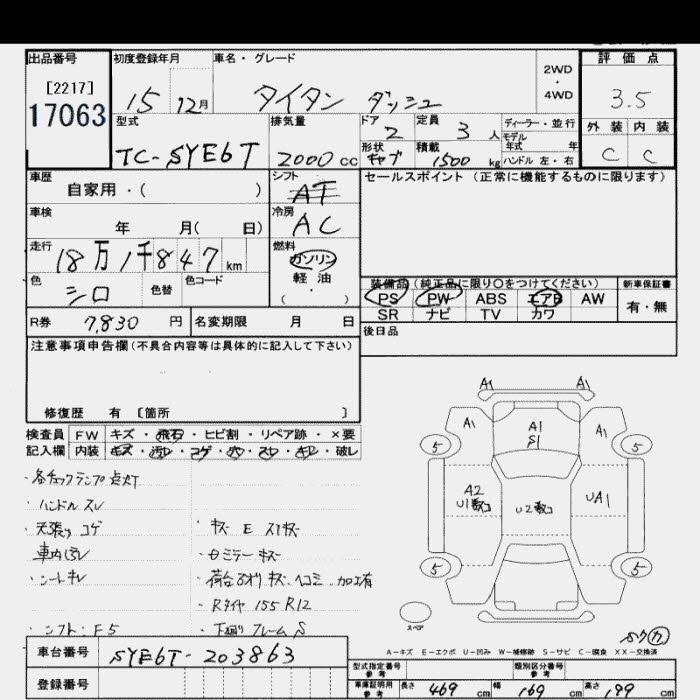 出品番号 初度登録年月 車名・グレード 評価点
[2217]
17063
15 12月 タイタン ダッシュ 2WD・4WD 3.5
型式 排気量 ドア 定員 ディーラー・並行 外装 内装
TC-SYE6T 2000cc 2 3人 モデル年式 年 C C
形状 キャブ 積載 1500kg ハンドル 左・右
車歴 シフト セールスポイント (正常に機能するものに限ります)
自家用・( )
車検 冷房 AC
年 月( 日)
走行 燃料
18万1千847km ガソリン
軽油
( ・ )
色 色替 色コード
シロ
装備品(純正品に限り○をつけてください) 新車保証書
PS PW ABS エアB AW 有・無
SR ナビ TV カワ
R券 7,830円 名変期限 月 日 後日品
注意事項申告欄(不具合内容等は具体的に記入して下さい)
修復歴 有 [箇所 ]
検査員 FW キズ・飛石・ヒビ割・リペア跡・×要
記入欄 内装 キズ・汚レ・コゲ・穴・スレ・キレ・破レ
・各チェックランプ点灯
・ハンドルスレ
・天張りコゲ
・シートキレ
・シフト:F5
・キズ E
・キズ
・Rタイヤ 155R12
・下廻り フレームS
A1 A1
A1 A1 S1 A1
5 5
A2 U1数コ U2数コ UA1
5 5
スペア
A-キズ E-エクボ U-凹み W-補修跡 S-サビ C-腐食 XX-交換済
車台番号 SYE6T-203863
登録番号
型式指定番号 参考 類別区分番号 参考
車庫証明用 参考 長さ 469cm 幅 169cm 高さ 199cm